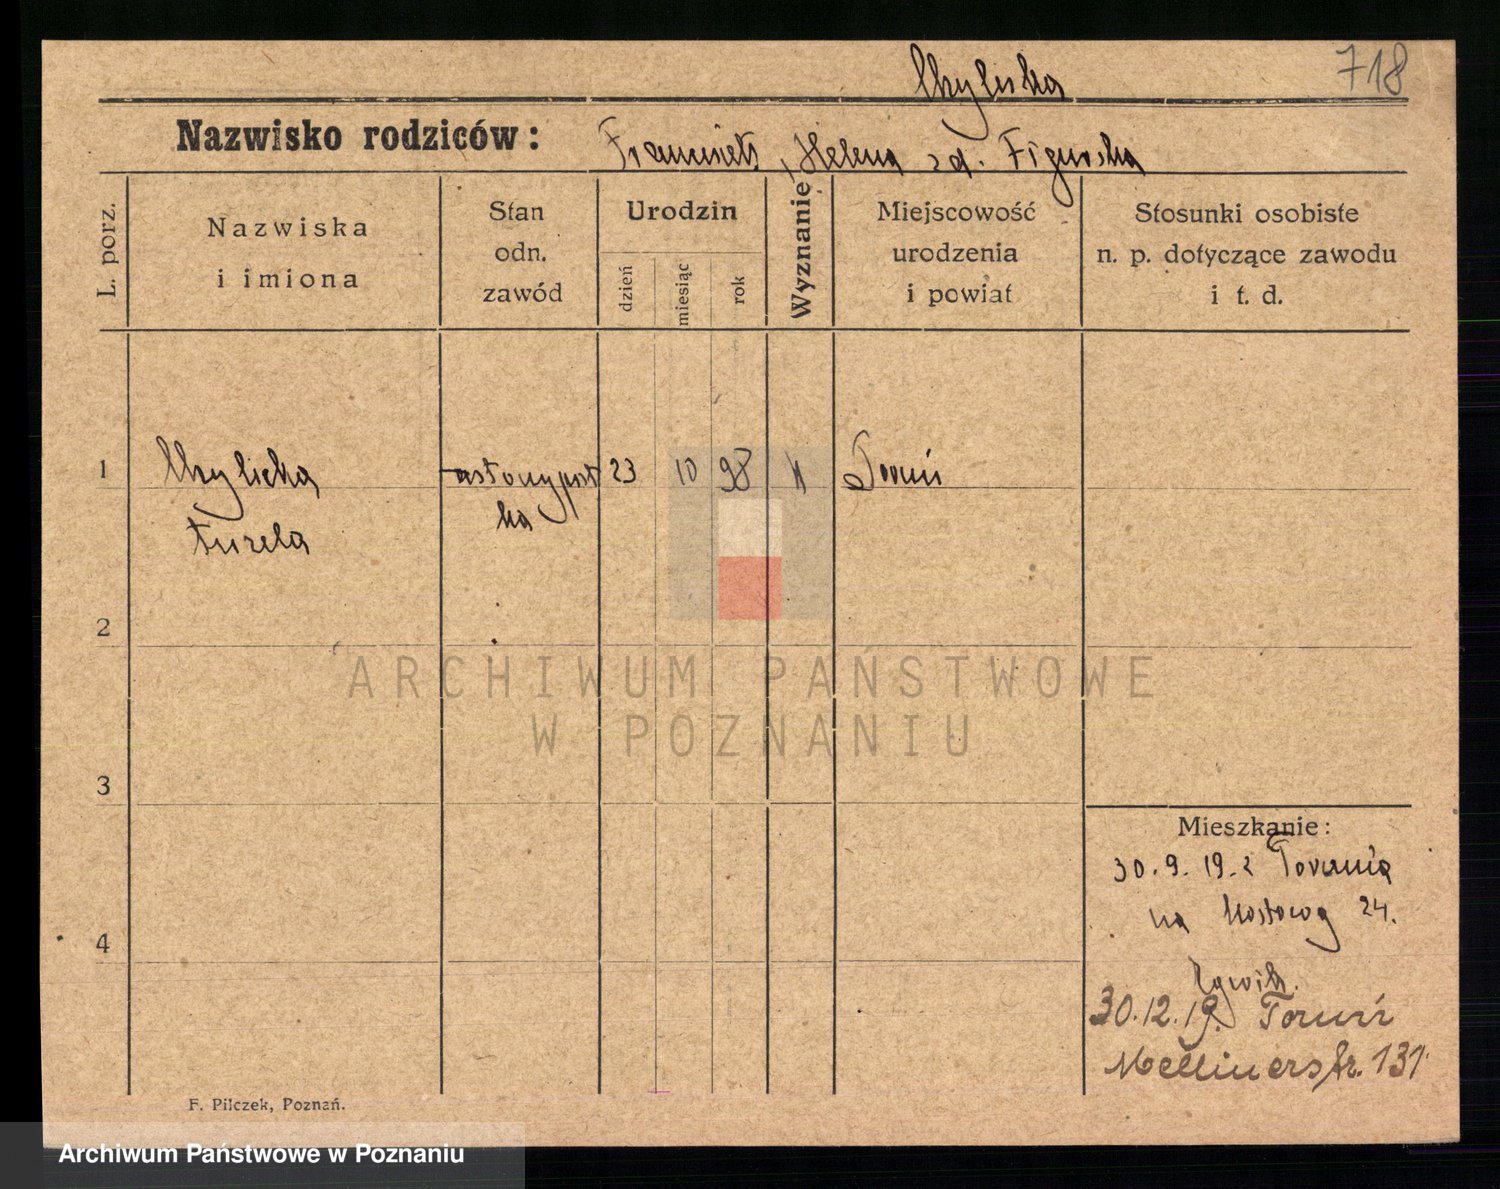 718
Nazwisko rodziców:
Franciszek, Helena zd. Figurska
L. porz.
Nazwiska
i imiona
Stan
odn.
zawód
Urodzin
dzień
miesiąc
rok
Wyznanie
Miejscowość
urodzenia
i powiat
Stosunki osobiste
n. p. dotyczące zawodu
i t. d.
1
23 10 98 Toruń
ka
2
3
4
Mieszkanie:
30.9.19. z Torunia
na 24.
30.12.19. Toruń
Mellinerstr. 131
F. Pilczek, Poznań.
ARCHIWUM PAŃSTWOWE
W POZNANIU
Archiwum Państwowe w Poznaniu